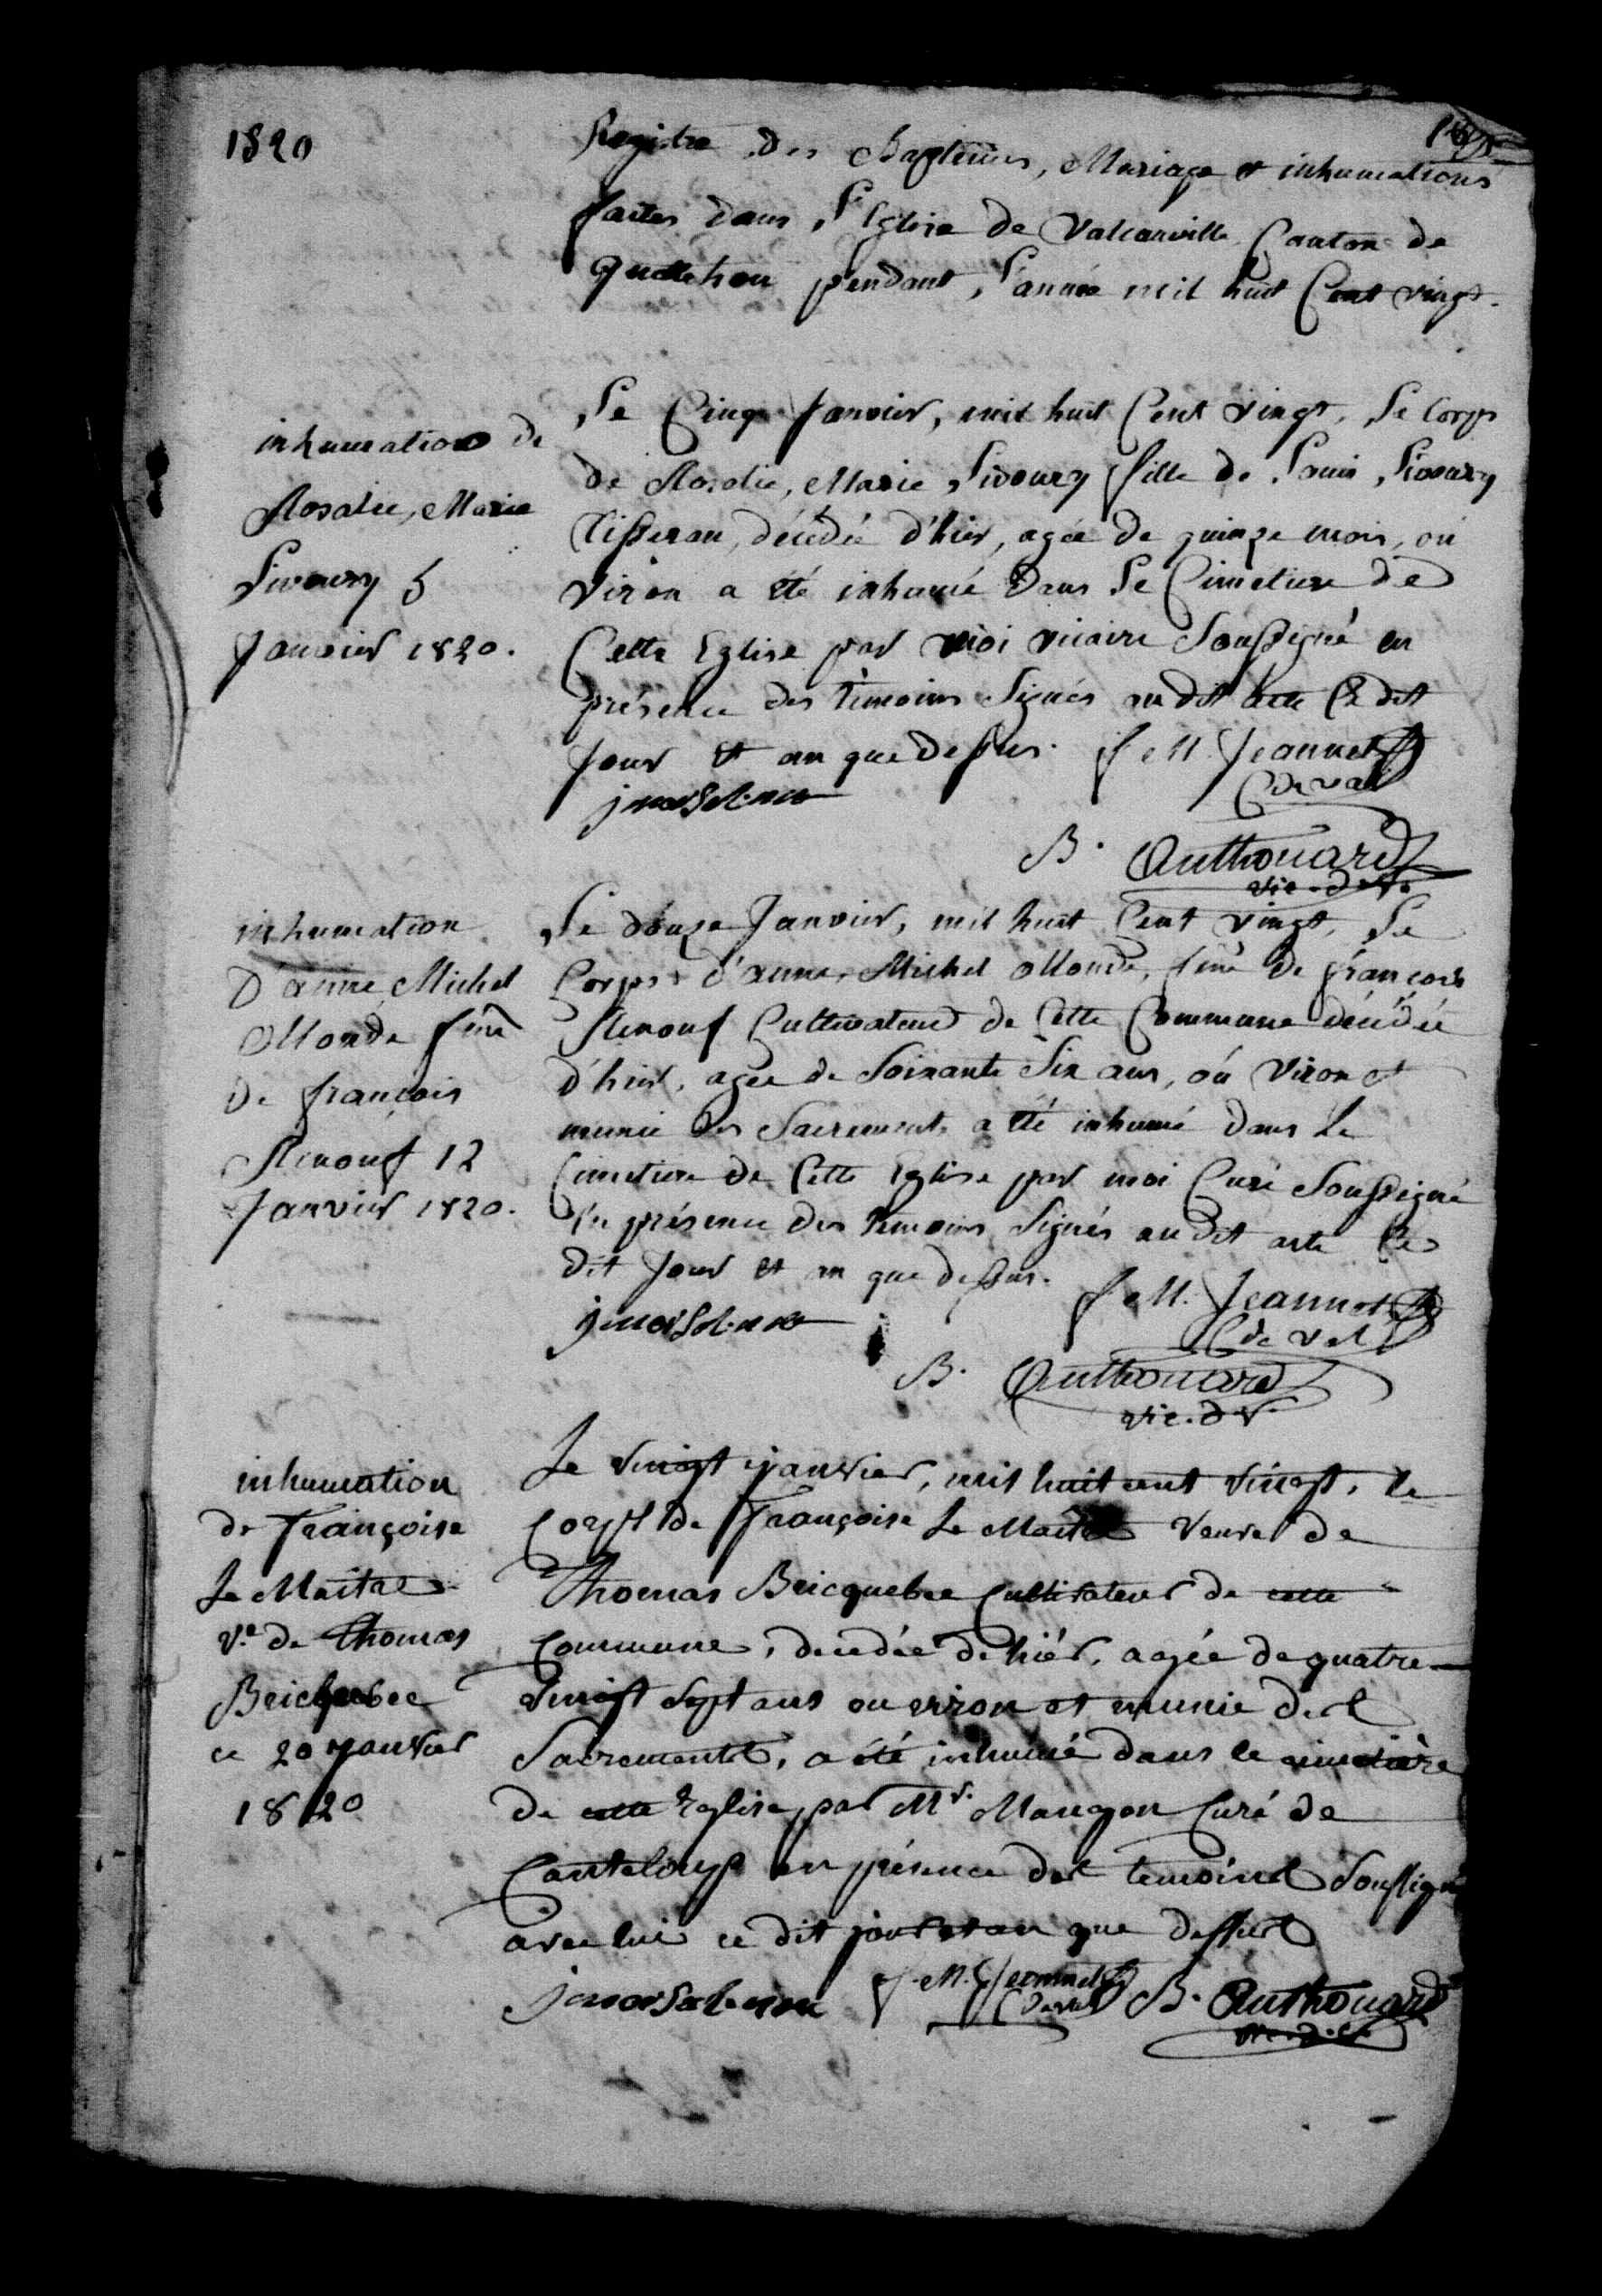 1820
Registre des Baptêmes, Mariage et inhumations
faites dans l'Eglise de Valcanville Canton de
Quettehou pendant l'année mil huit Cent vingt.
inhumation de
Rosalie, Marie
Livoury 5
Janvier 1820.
Le Cinq Janvier, mil huit Cent vingt, Le Corps
de Rosalie, Marie Livoury fille de Louis Livoury
Tisseran, décédée d'hier, agée de quinze mois, ou
viron a été inhumé dans Le Cimetiere de
Cette Eglise par moi vicaire Soussigné en
présence des témoins Signés au dit acte Ce dit
Jour et an que dessus. J M. Jeannet
C de val
B. Authouard
vic. de V.
inhumation
D'anne Michel
Monde fme
De françois
Renouf 12
Janvier 1820.
Le douze Janvier, mil huit Cent vingt, Le
Corps d'anne Michel Monde, fme de françois
Renouf Cultivateur de Cette Commune décédée
d'hier, agée de Soixante Six ans, ou viron et
munie des Sacrements a été inhumé dans Le
Cimetiere de Cette Eglise par moi Curé Soussigné
En présence des témoins Signés au dit acte Ce
dit Jour et an que dessus.
J M. Jeannet
C de val
B. Authouard
vic. d V.
inhumation
de Françoise
Le Maitre
Ve de Thomas
Bricquebec
ce 20 janvier
1820
Le vingt janvier, mil huit cent vingt, le
Corps de Françoise Le Maitre Veuve de
Thomas Bricquebec Cultivateur de cette
Commune, decedée de hiér, agée de quatre
vingt sept ans ou viron et munie des
Sacrements, a été inhumé dans le cimetière
de cette Eglise par Mr. Mangon Curé de
Canteloup en présence des temoins Soussignés
avec lui ce dit jour et an que dessus
J. M. Jeannet
C de val
B. Authouard